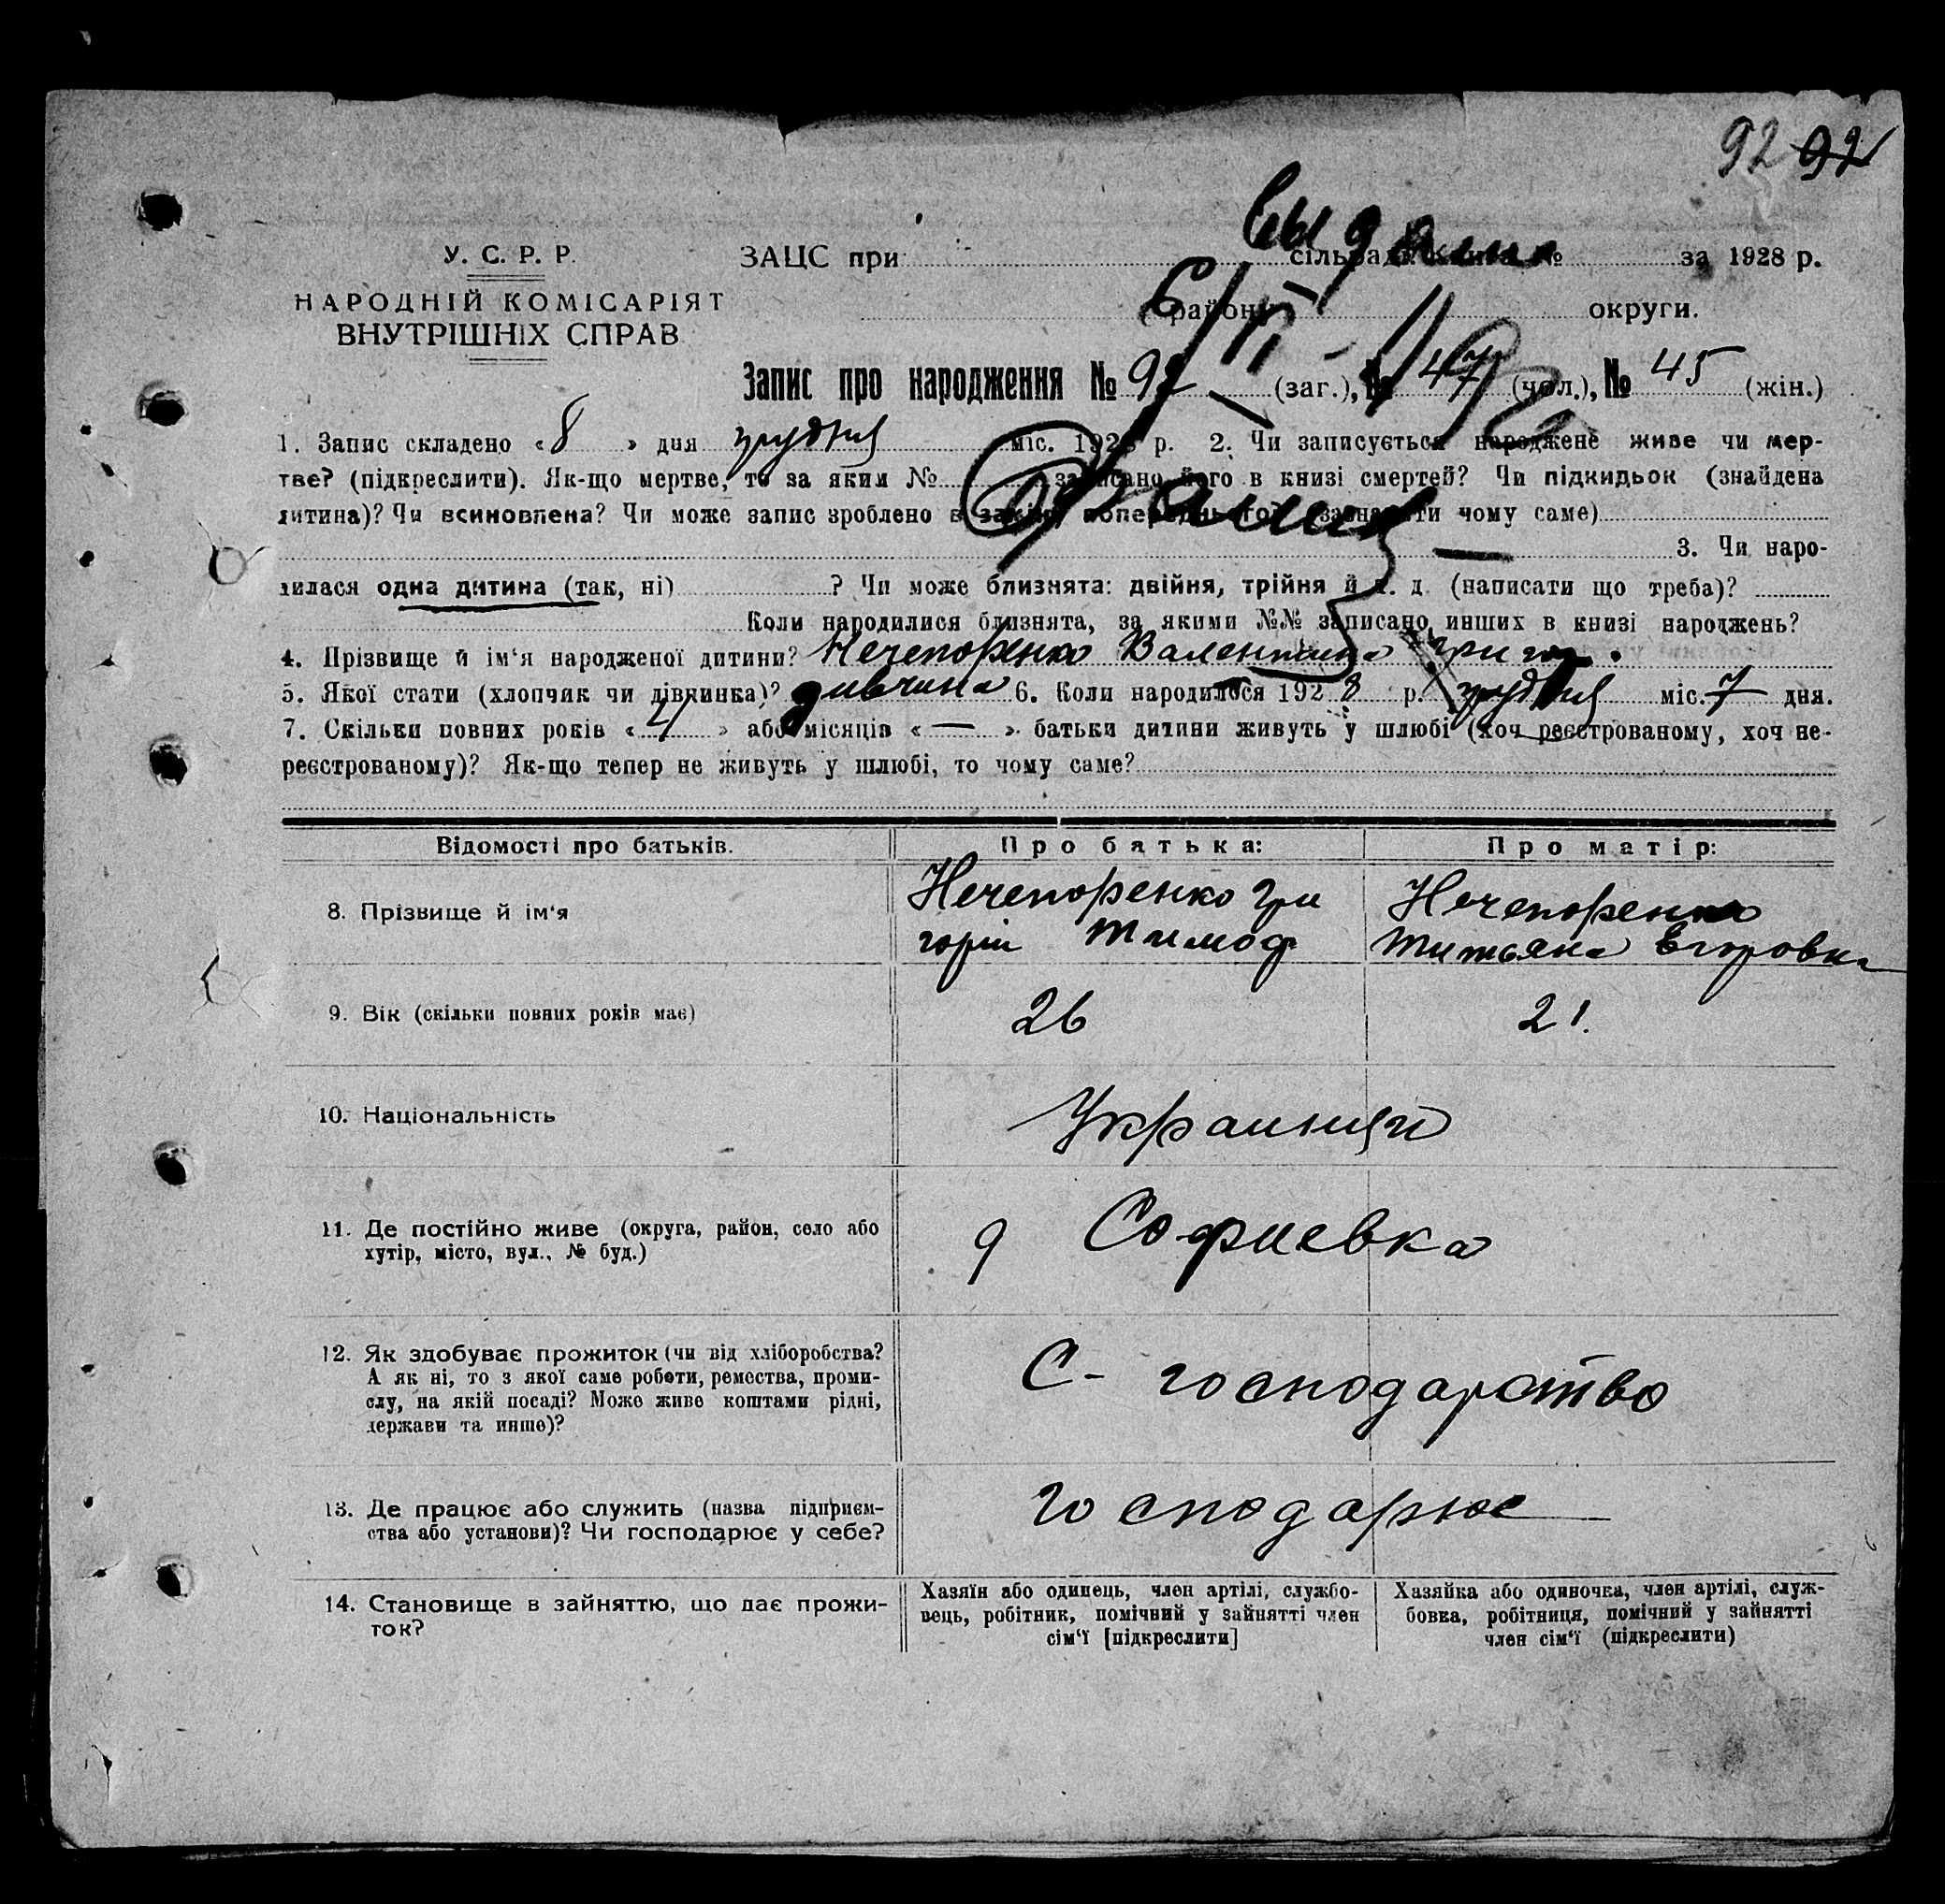 92 92
У. С. Р. Р.
НАРОДНІЙ КОМІСАРІЯТ
ВНУТРІШНІХ СПРАВ
ЗАЦС при сільраді. Книга № за 1928 р.
району округи.
Запис про народження № 92 (заг.), № 47 (чол.), № 45 (жін.)
1. Запис складено «8» дня грудня міс. 1928 р. 2. Чи записується народжене живе чи мер-
тве? (підкреслити). Як-що мертве, то за яким № записано його в книзі смертей? Чи підкидьок (знайдена
дитина)? Чи всиновлена? Чи може запис зроблено в чому саме)
3. Чи наро-
дилася одна дитина (так, ні) ? Чи може близнята: двійня, трійня й т. д. (написати що треба)?
Коли народилися близнята, за якими №№ записано инших в книзі народжень?
4. Прізвище й ім‘я народженої дитини? Нечепоренко Валентина Григор.
5. Якої стати (хлопчик чи дівчинка)? дивчина 6. Коли народилося 1928 р. грудня міс. 7 дня.
7. Скільки повних років «4» або місяців «—» батьки дитини живуть у шлюбі (хоч реєстрованому, хоч не-
реєстрованому)? Як-що тепер не живуть у шлюбі, то чому саме?
Відомості про батьків. Про батька: Про матір:
8. Прізвище й ім‘я Нечепоренко Гри Нечепоренко
горій Тимоф Титьяна Егоровна
9. Вік (скільки повних років має) 26 21.
10. Національність Украинци
11. Де постійно живе (округа, район, село або
хутір, місто, вул., № буд.) д Софиевка
12. Як здобуває прожиток (чи від хліборобства?
А як ні, то з якої саме роботи, ремества, проми-
слу, на якій посаді? Може живе коштами рідні,
держави та инше)? С- господарство
13. Де працює або служить (назва підприєм-
ства або установи)? Чи господарює у себе? господарює
14. Становище в зайняттю, що дає прожи-
ток?
Хазяїн або одинець, член артілі, службо-
вець, робітник, помічний у зайнятті член
сім‘ї [підкреслити]
Хазяйка або одиночка, член артілі, служ-
бовка, робітниця, помічний у зайнятті
член сім‘ї (підкреслити)